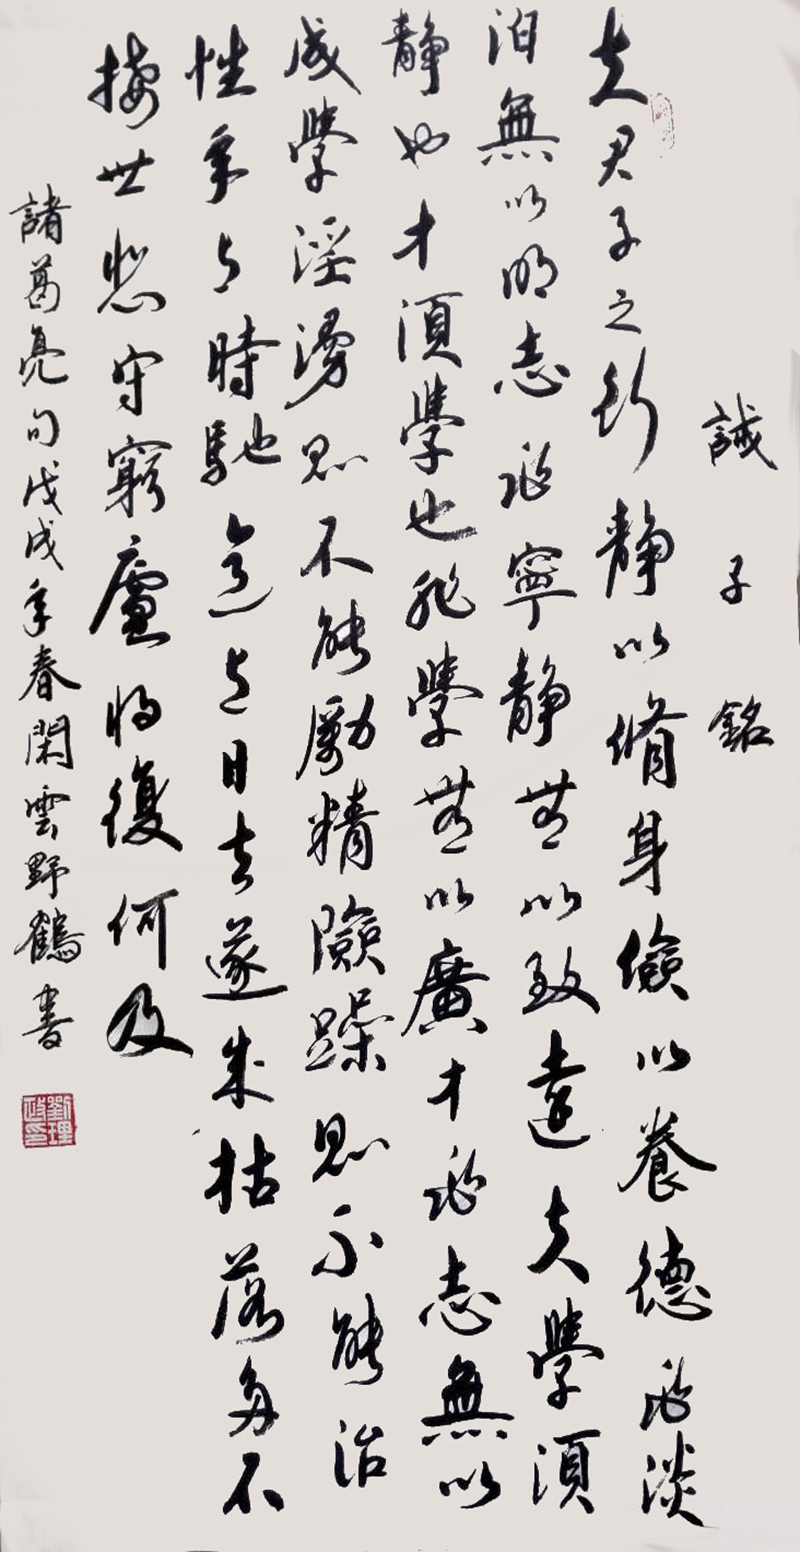 誡子銘
夫君子之行静以脩身儉以養德非淡
泊無以明志非寧静無以致遠夫學須
静也才須學也非學無以廣才非志無以
成學淫漫則不能勵精險躁則不能治
性年与時馳意与日去遂成枯落多不
接世悲守窮廬将復何及
諸葛亮句戊戌年春閑雲野鶴書
劉理政印